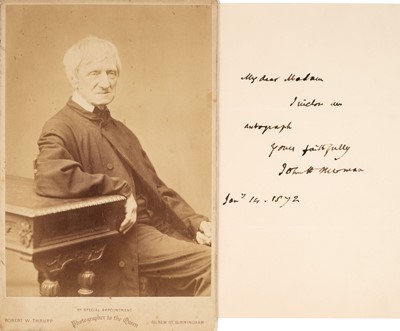 BY SPECIAL APPOINTMENT
ROBERT W. THRUPP. Photographer to the Queen NEW ST BIRMINGHAM
My dear Madam
I inclose an
autograph
Yours faithfully
John H Newman
Jany 14. 1872